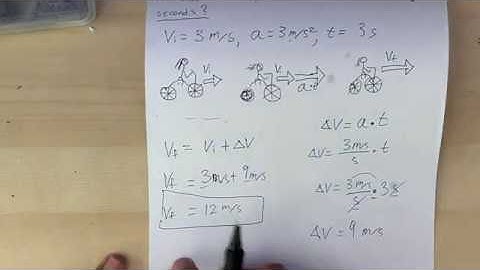 seconds?
Vi = 3 m/s, a = 3 m/s², t = 3 s
Vi
Vi
a·t
Vf
Vf = Vi + ΔV
Vf = 3 m/s + 9 m/s
Vf = 12 m/s
ΔV = a · t
ΔV = 3 m/s / s · t
ΔV = 3 m/s / s · 3 s
ΔV = 9 m/s